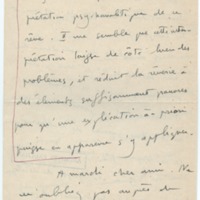 prétation psychanalytique de ce
rêve. Il me semble que cette inter-
prétation laisse de côté bien des
problèmes, et réduit la rêverie à
des éléments suffisamment pauvres
pour qu'une explication à priori
puisse en apparence s'y appliquer.
A mardi cher ami. Ne
m'oubliez pas auprès de